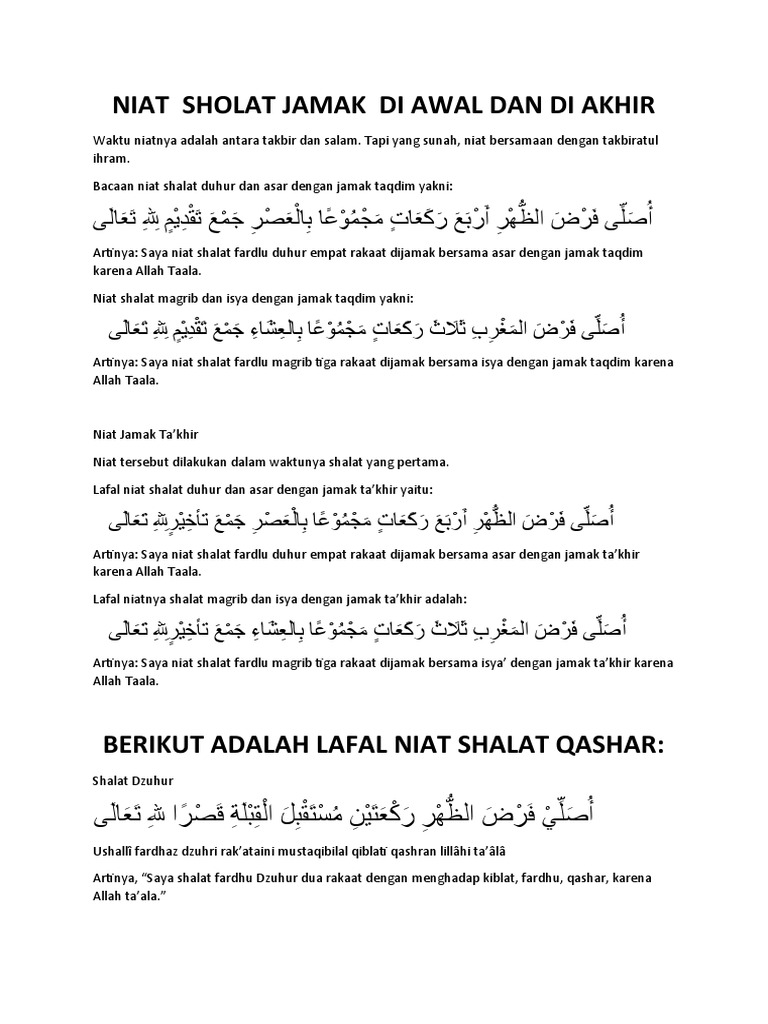 NIAT  SHOLAT JAMAK  DI AWAL DAN DI AKHIR
Waktu niatnya adalah antara takbir dan salam. Tapi yang sunah, niat bersamaan dengan takbiratul
ihram.
Bacaan niat shalat duhur dan asar dengan jamak taqdim yakni:
أُصَلِّى فَرْضَ الظُّهْرِ أَرْبَعَ رَكَعَاتٍ مَجْمُوْعًا بِالْعَصْرِ جَمْعَ تَقْدِيْمٍ لِلهِ تَعَالَى
Artinya: Saya niat shalat fardlu duhur empat rakaat dijamak bersama asar dengan jamak taqdim
karena Allah Taala.
Niat shalat magrib dan isya dengan jamak taqdim yakni:
أُصَلِّى فَرْضَ المَغْرِبِ ثَلَاثَ رَكَعَاتٍ مَجْمُوْعًا بِالعِشَاءِ جَمْعَ تَقْدِيْمٍ لِلهِ تَعَالَى
Artinya: Saya niat shalat fardlu magrib tiga rakaat dijamak bersama isya dengan jamak taqdim karena
Allah Taala.
Niat Jamak Ta’khir
Niat tersebut dilakukan dalam waktunya shalat yang pertama.
Lafal niat shalat duhur dan asar dengan jamak ta’khir yaitu:
أُصَلِّى فَرْضَ الظُّهْرِ أَرْبَعَ رَكَعَاتٍ مَجْمُوْعًا بِالْعَصْرِ جَمْعَ تأخِيْرٍلِلهِ تَعَالَى
Artinya: Saya niat shalat fardlu duhur empat rakaat dijamak bersama asar dengan jamak ta’khir
karena Allah Taala.
Lafal niatnya shalat magrib dan isya dengan jamak ta’khir adalah:
أُصَلِّى فَرْضَ المَغْرِبِ ثَلَاثَ رَكَعَاتٍ مَجْمُوْعًا بِالعِشَاءِ جَمْعَ تأخِيْرٍلِلهِ تَعَالَى
Artinya: Saya niat shalat fardlu magrib tiga rakaat dijamak bersama isya’ dengan jamak ta’khir karena
Allah Taala.
BERIKUT ADALAH LAFAL NIAT SHALAT QASHAR:
Shalat Dzuhur
أُصَلِّيْ فَرْضَ الظُّهْرِ رَكْعَتَيْنِ مُسْتَقْبِلَ الْقِبْلَةِ قَصْرًا للهِ تَعَالَى
Ushallî fardhaz dzuhri rak’ataini mustaqibilal qiblati qashran lillâhi ta’âlâ
Artinya, “Saya shalat fardhu Dzuhur dua rakaat dengan menghadap kiblat, fardhu, qashar, karena
Allah ta’ala.”